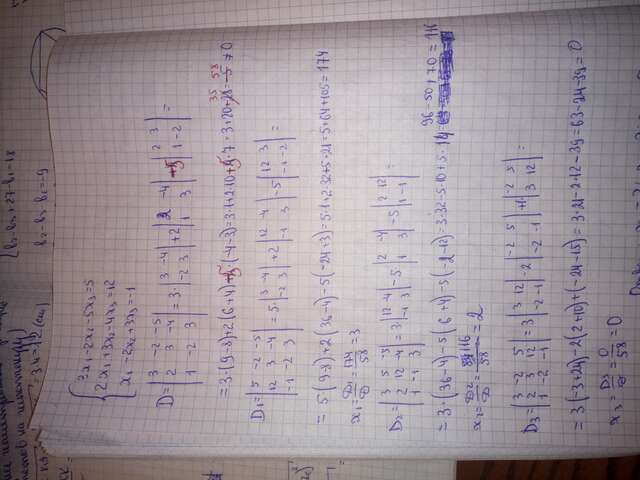 b₂-b₃+27-b₁=18
b₂-b₃-b₁=-9
=3·4=12 (см)
{3x₁-2x₂-5x₃=5
2x₁+3x₂-4x₃=12
x₁-2x₂+3x₃=-1
D=|3 -2 -5; 2 3 -4; 1 -2 3|=3·|3 -4; -2 3|+2|2 -4; 1 3|+5|2 3; 1 -2|=
=3·(9-8)+2(6+4)+5·(-4-3)=3·1+2·10+5·7=3+20+35=58≠0
D₁=|5 -2 -5; 12 3 -4; -1 -2 3|=5·|3 -4; -2 3|+2|12 -4; -1 3|-5|12 3; -1 -2|=
=5·(9-8)+2(36-4)-5(-24+3)=5·1+2·32+5·21=5+64+105=174
x₁=D₁/D=174/58=3
D₂=|3 5 -5; 2 12 -4; 1 -1 3|=3·|12 -4; -1 3|-5·|2 -4; 1 3|-5|2 12; 1 -1|=
=3·(36-4)-5(6+4)-5(-2-12)=3·32-5·10+5·14 96-50+70=116
x₂=D₂/D=116/58=2
D₃=|3 -2 5; 2 3 12; 1 -2 -1|=3|3 12; -2 -1|-2|-2 5; -2 -1|+1·|-2 5; 3 12|=
=3(-3+24)-2(2+10)+(-24-15)=3·21-2·12-39=63-24-39=0
x₃=D₃/D=0/58=0